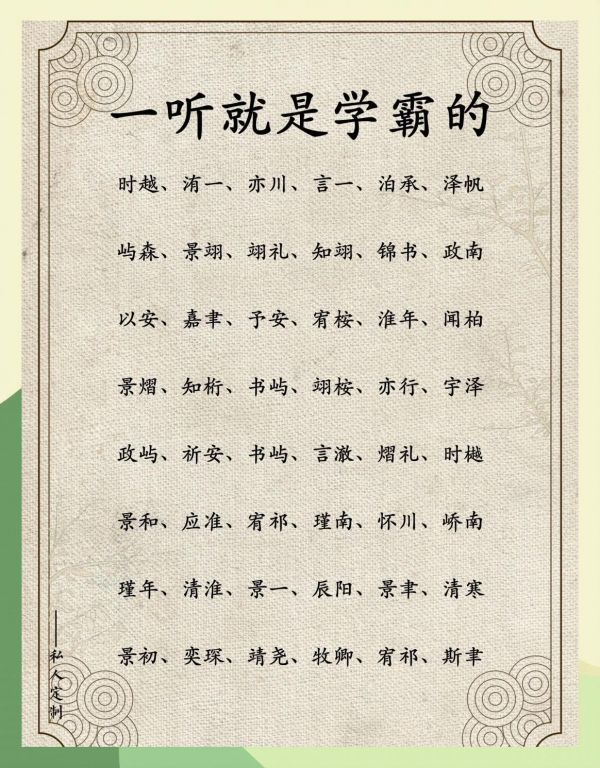 一听就是学霸的
时越、洧一、亦川、言一、泊承、泽帆
屿森、景翊、翊礼、知翊、锦书、政南
以安、嘉聿、予安、宥桉、淮年、闻柏
景熠、知桁、书屿、翊桉、亦行、宇泽
政屿、祈安、书屿、言澈、熠礼、时樾
景和、应准、宥祁、瑾南、怀川、峤南
瑾年、清淮、景一、辰阳、景聿、清寒
景初、奕琛、靖尧、牧卿、宥祁、斯聿
——私人定制